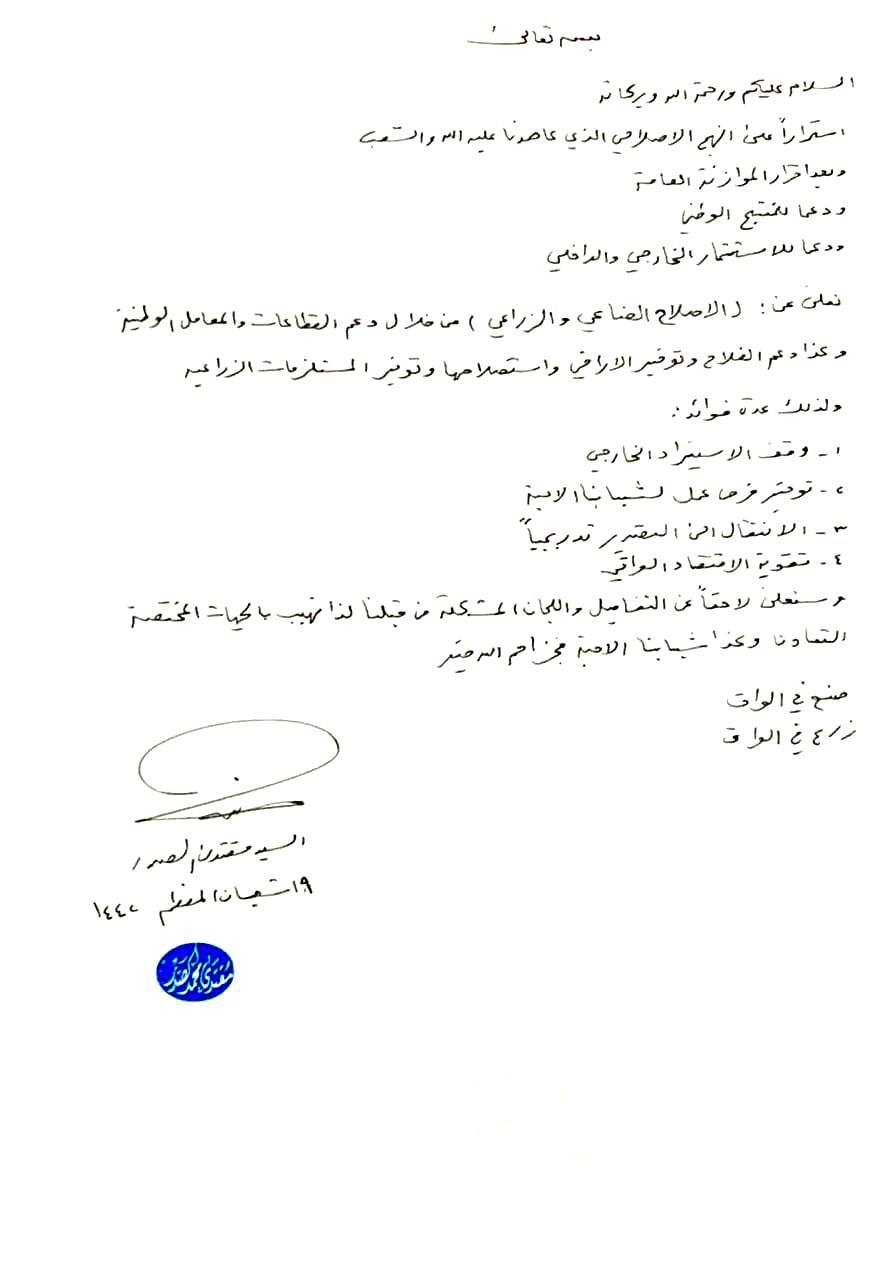 بسمه تعالى
السلام عليكم ورحمة الله وبركاته
استمراراً على النهج الاصلاحي الذي عاهدنا عليه الله والشعب
وبعد اقرار الموازنة العامة
ودعما للمنتج الوطني
ودعما للاستثمار الخارجي والداخلي
نعلن عن: (الاصلاح الصناعي والزراعي) من خلال دعم القطاعات والمعامل الوطنية
وكذا دعم الفلاح وتوفير الاراضي واستصلاحها وتوفير المستلزمات الزراعيه
ولذلك عدة فوائد:
١- وقف الاستيراد الخارجي
٢- توفير فرص عمل لشبابنا الاحبة
٣- الانتقال الى التصدير تدريجياً
٤- تقوية الاقتصاد العراقي
وسنعلن لاحقاً عن التفاصيل واللجان المشكلة من قبلنا لذا نهيب بالجهات المختصة
التعاون وكذا شبابنا الاحبة فجزاهم الله خير
صنع في العراق
زرع في العراق
السيد مقتدى الصدر
١٩ شعبان المعظم ١٤٤٢
مقتدى محمد الصدر